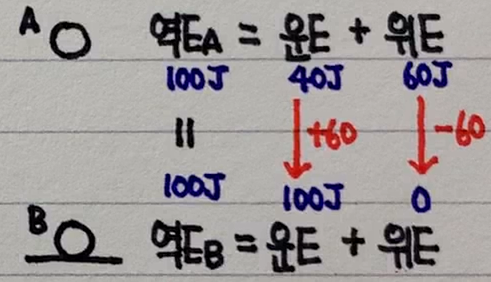 A 역EA = 운E + 위E
100J 40J 60J
|| +60 -60
100J 100J 0
B 역EB = 운E + 위E